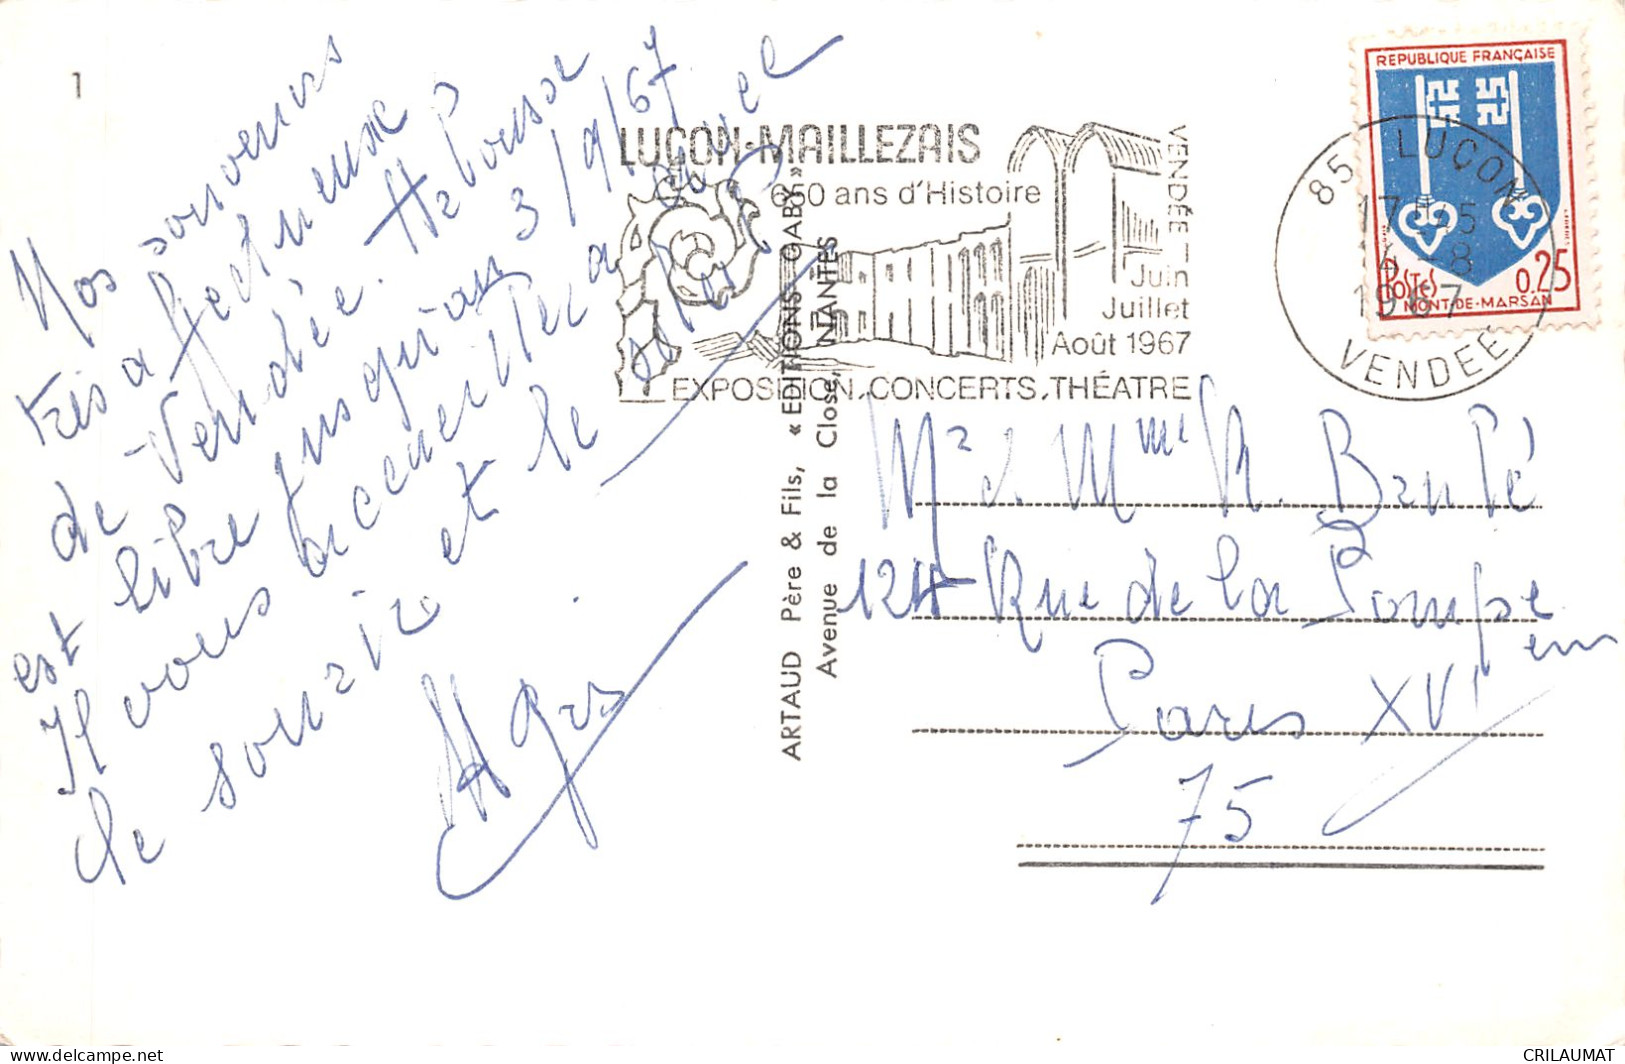 1
Nos souvenirs
très affectueux
de Vendée.
est libre jusqu'au 3/9/67
Il vous accueillera avec
le sourire et le
LUÇON-MAILLEZAIS
650 ans d'Histoire
VENDÉE
Juin
Juillet
Août 1967
EXPOSITION, CONCERTS, THÉATRE
ARTAUD Père & Fils, « EDITIONS GABY »
Avenue de la Close, NANTES
REPUBLIQUE FRANÇAISE
POSTES
0.25
MONT-DE-MARSAN
85 LUÇON
8
1967
VENDEE
Mr. Mme
124 Rue de la Pompe
Paris XVIem
75
CRILAUMAT